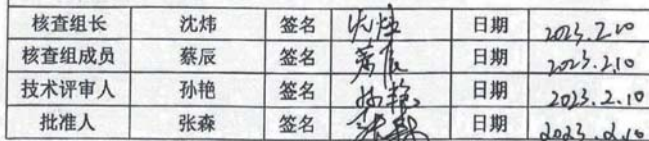 核查组长 沈炜 签名 沈炜 日期 2023.2.10
核查组成员 蔡辰 签名 蔡辰 日期 2023.2.10
技术评审人 孙艳 签名 孙艳 日期 2023.2.10
批准人 张森 签名 张森 日期 2023.2.10